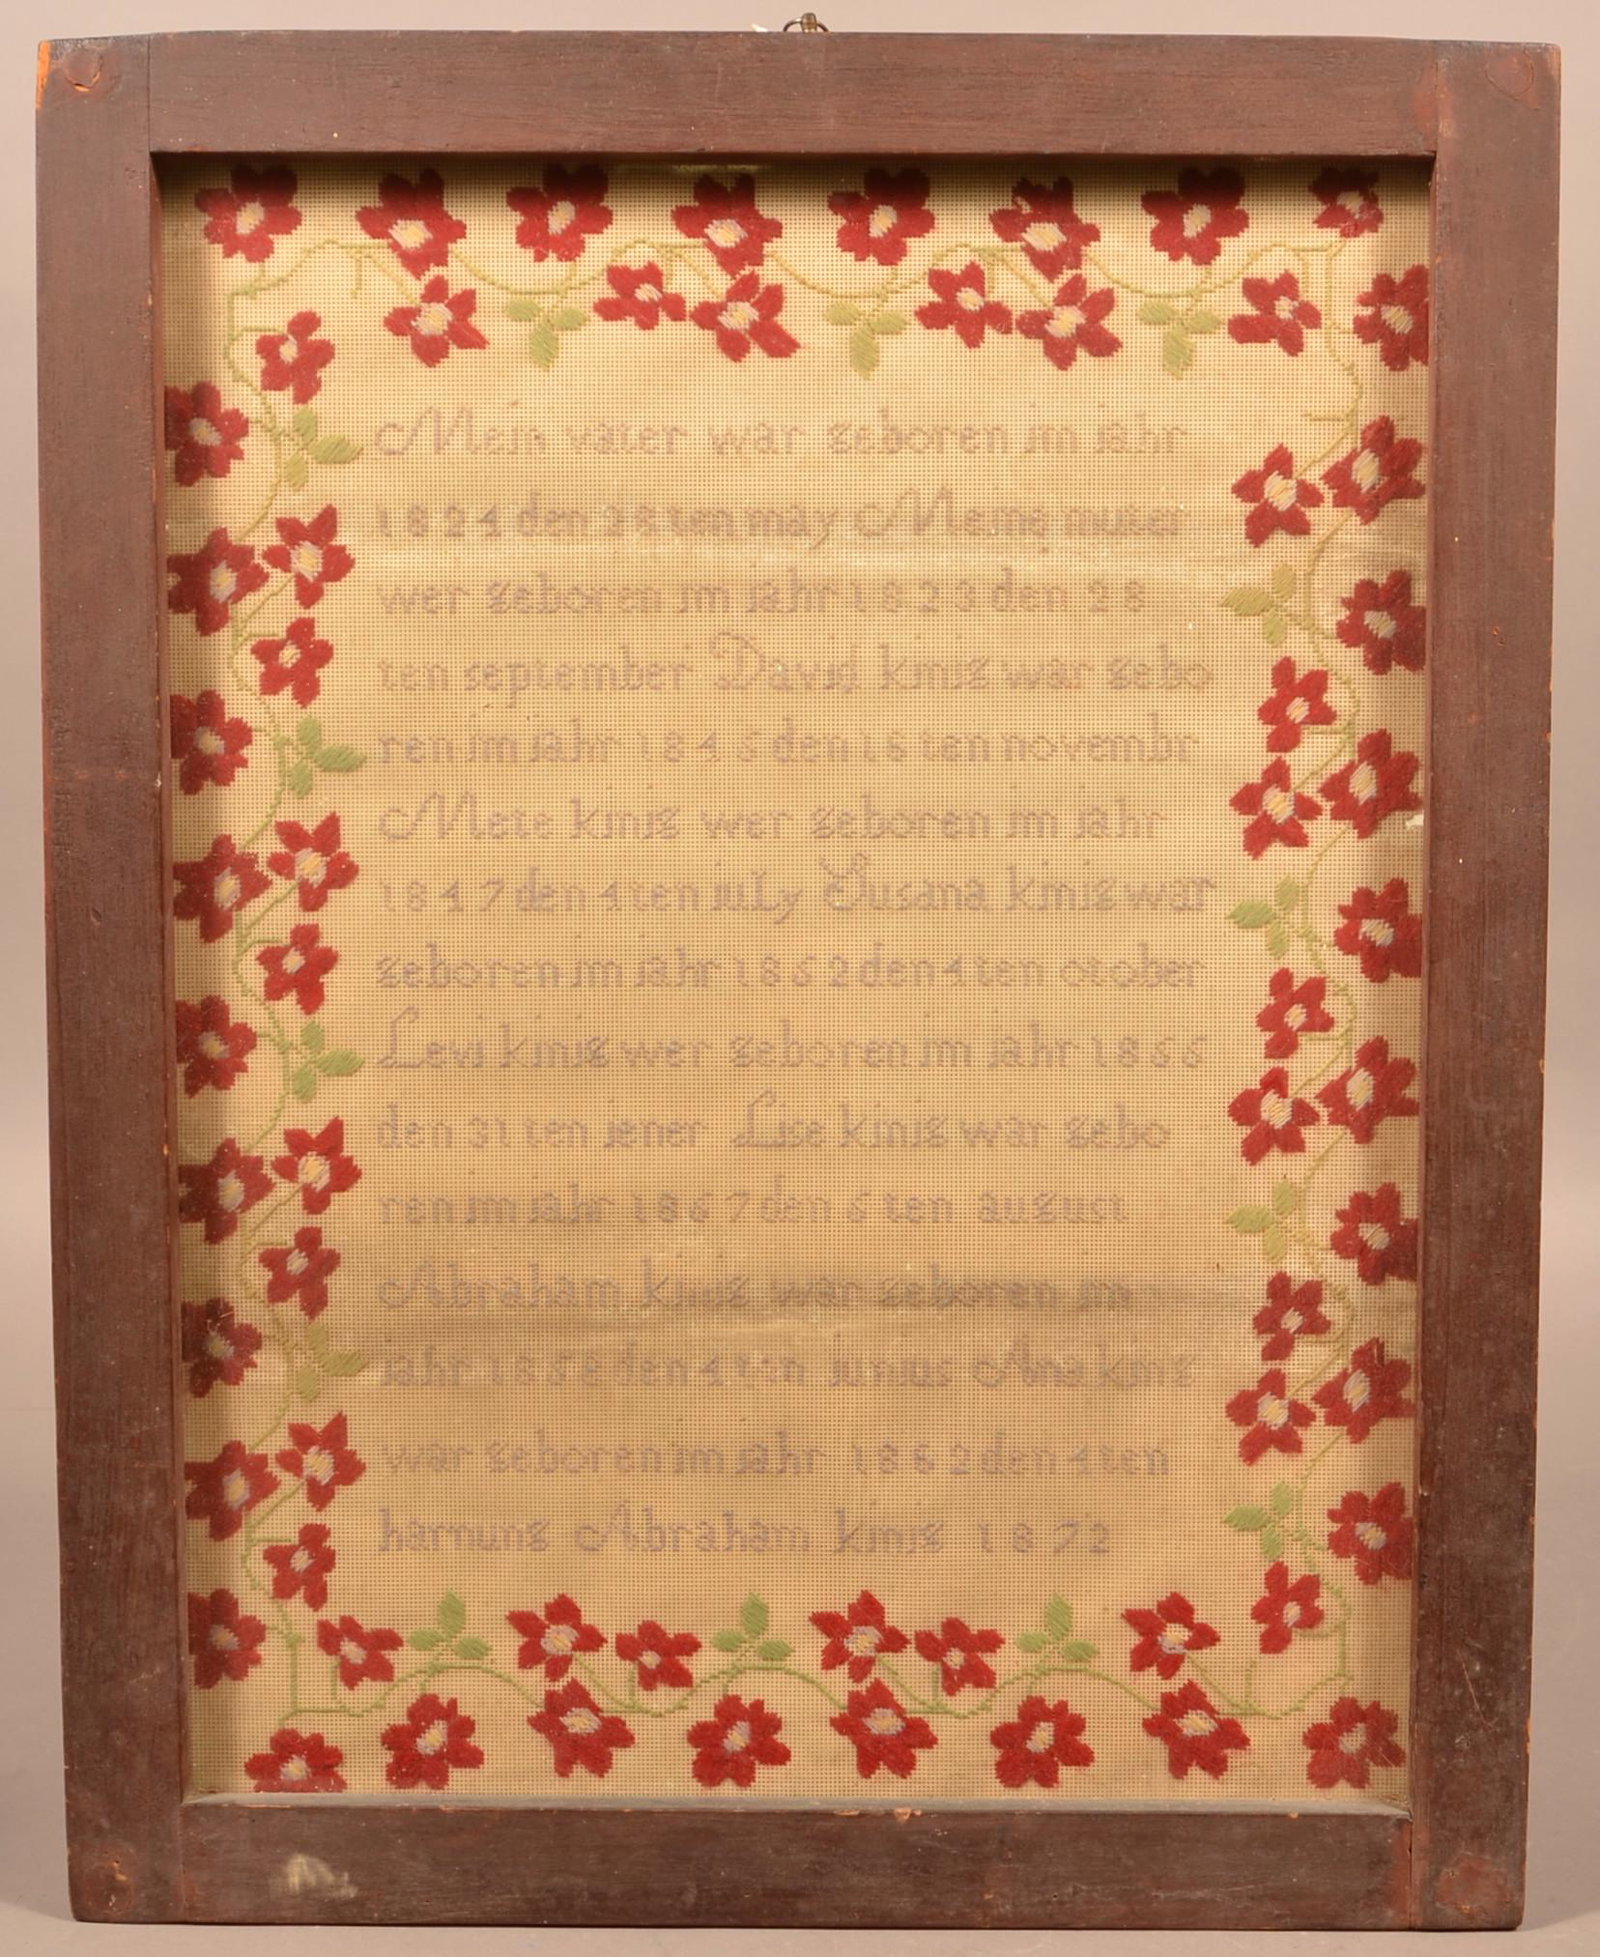 Mein vater war geboren im jahr
1824 den 28 ten may Meine muter
wer geboren im jahr 1823 den 28
ten september David kinig war gebo
ren im jahr 1846 den 16 ten novembr
Mete kinig wer geboren im jahr
1847 den 4 ten july Susana kinig war
geboren im jahr 1852 den 4 ten october
Levi kinig wer geboren im jahr 1866
den 31 ten jener Lise kinig war gebo
ren im jahr 1867 den 6 ten august
Abraham kinig war geboren im
jahr den 4 ten junius Ana kinig
war geboren im jahr 1862 den 4 ten
harnung Abraham kinig 1872